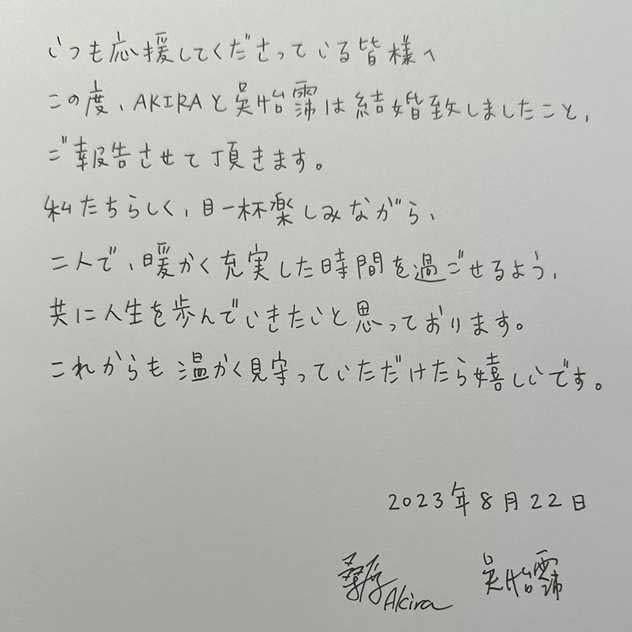 いつも応援してくださっている皆様へ
この度、AKIRAと吴怡霈は結婚致しましたこと、
ご報告させて頂きます。
私たちらしく、目一杯楽しみながら、
二人で、暖かく充実した時間を過ごせるよう、
共に人生を歩んでいきたいと思っております。
これからも温かく見守っていただけたら嬉しいです。
2023年8月22日
Akira 吴怡霈